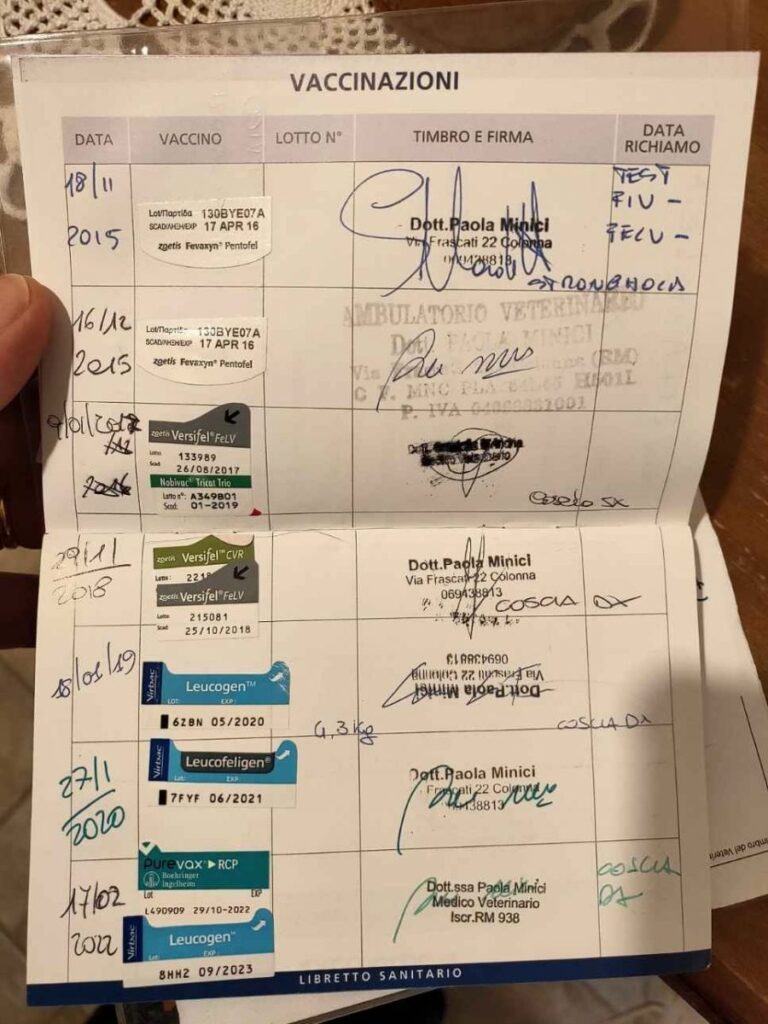 VACCINAZIONI
DATA VACCINO LOTTO N° TIMBRO E FIRMA DATA RICHIAMO
18/11
2015
Lot/Партіда 130BYE07A
SCAD/ΛΗΞΗ/EXP 17 APR 16
zoetis Fevaxyn® Pentofel
Dott.Paola Minici
Via Frascati 22 Colonna
069438813
STRONGHOLD
TEST
FIV -
FELV -
16/12
2015
Lot/Партіда 130BYE07A
SCAD/ΛΗΞΗ/EXP 17 APR 16
zoetis Fevaxyn® Pentofel
AMBULATORIO VETERINARIO
Dott. PAOLA MINICI
Via (RM)
C F. MNC PLA H501L
P. IVA
zoetis Versifel® FeLV
Lotto: 133989
Scad: 26/08/2017
Nobivac® Tricat Trio
Lotto n°: A349B01
Scad: 01-2019
29/11
2018
zoetis Versifel™ CVR
Lotto:
zoetis Versifel® FeLV
Lotto: 215081
Scad: 25/10/2018
Dott.Paola Minici
Via Frascati 22 Colonna
069438813
COSCIA DX
18/01/19
Virbac
Leucogen™
LOT: EXP:
6ZBN 05/2020
4,3 Kg
Dott.Paola Minici
Via Frascati 22 Colonna
069438813
COSCIA DX
27/1
2020
Virbac
Leucofeligen®
Lot: EXP:
7FYF 06/2021
Dott.Paola Minici
Frascati 22 Colonna
17/02
2022
Purevax® RCP
Boehringer
Ingelheim
Lot EXP
L490909 29/10-2022
Virbac
Leucogen™
Lot: EXP:
8HH2 09/2023
Dott.ssa Paola Minici
Medico Veterinario
Iscr.RM 938
COSCIA
DX
LIBRETTO SANITARIO